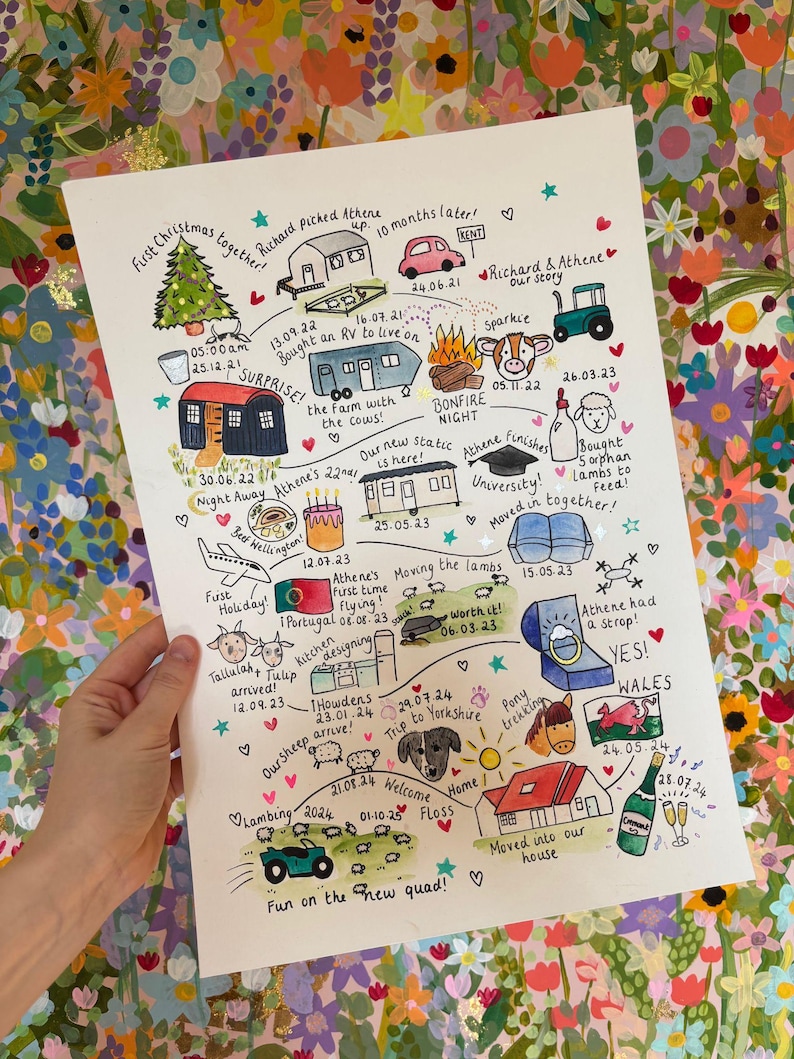 Richard & Athene
our story
Richard picked Athene
up.
16.07.21
10 months later!
KENT
24.06.21
First Christmas together!
05:00am
25.12.21
SURPRISE!
30.06.22
Night Away
13.09.22
Bought an RV to live on
the farm with
the cows!
BONFIRE
NIGHT
Sparkie
05.11.22
26.03.23
Bought
5 orphan
lambs to
feed!
Athene Finishes
University!
Our new static
is here!
25.05.23
Athene's 22nd!
Beef Wellington!
12.07.23
Moved in together!
15.05.23
First
Holiday!
Athene's
First time
flying!
Portugal 08.08.23
Moving the lambs
Stuck!
Worth it!
06.03.23
Athene had
a strop!
YES!
Tallulah + Tulip
arrived!
12.09.23
Kitchen
designing
Howdens
23.01.24
29.07.24
Trip to Yorkshire
Pony
trekking
WALES
24.05.24
Our sheep
arrive!
21.08.24
Welcome
Home
Floss
28.07.24
Cremont
Moved into our
house
Lambing 2024
01.10.25
Fun on the new quad!